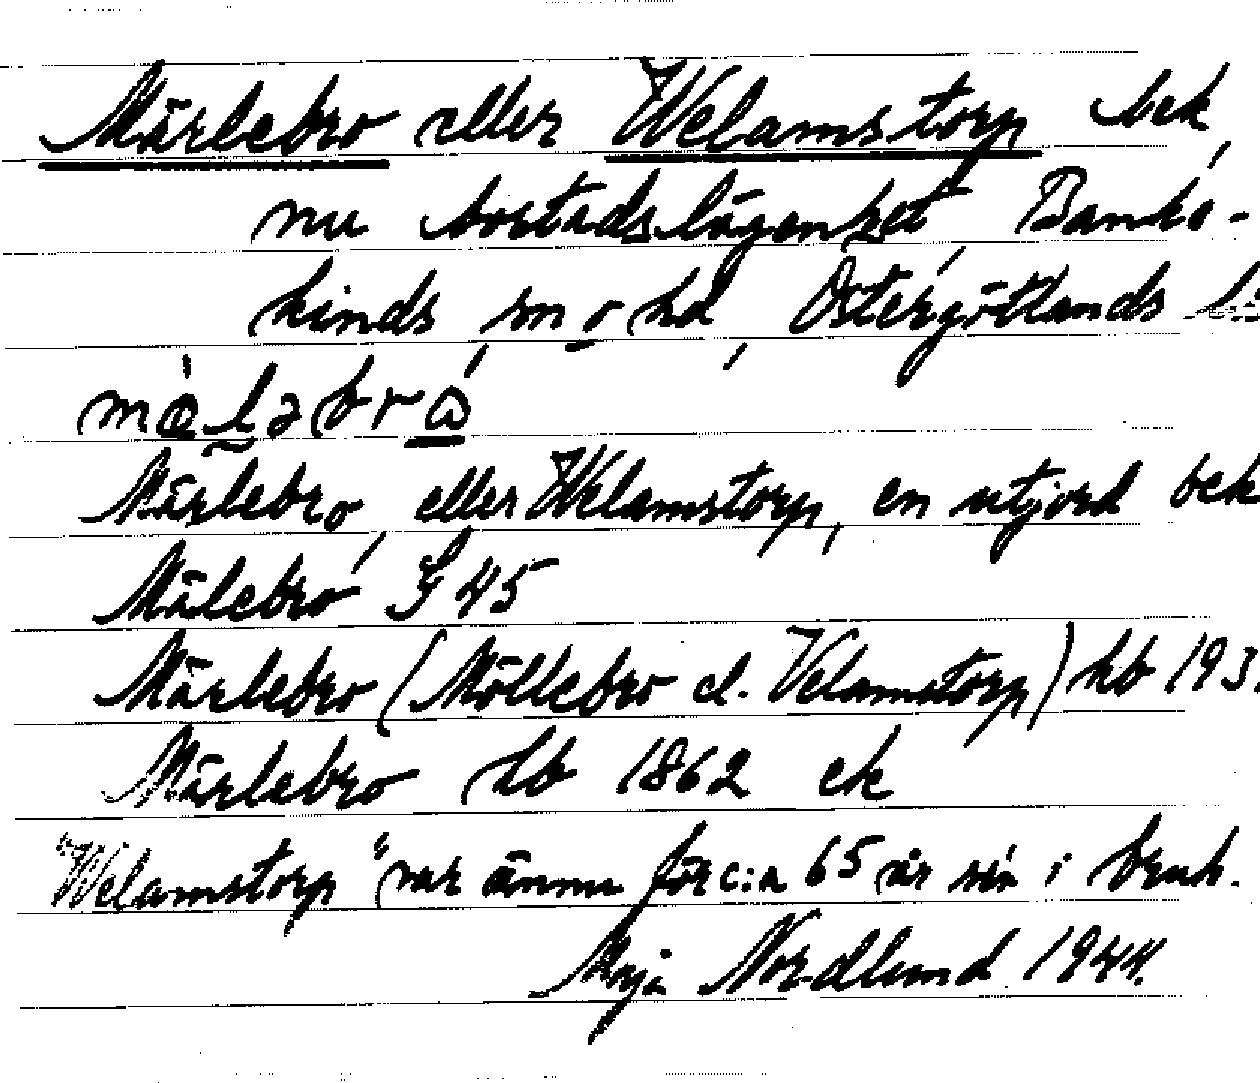 Märlebro eller Welamstorp bek,
nu bostadslägenhet, Banke-
kinds sn o hd, Östergötlands
Märlebro eller Welamstorp, en utjord bek
Mälebro, J 45
Märlebro (Möllebro el. Velamstorp) hb 193
Märlebro hb 1862 ek
"Welamstorp" var ännu för c:a 65 år sen i bruk.
Maja Nordlund 1944.